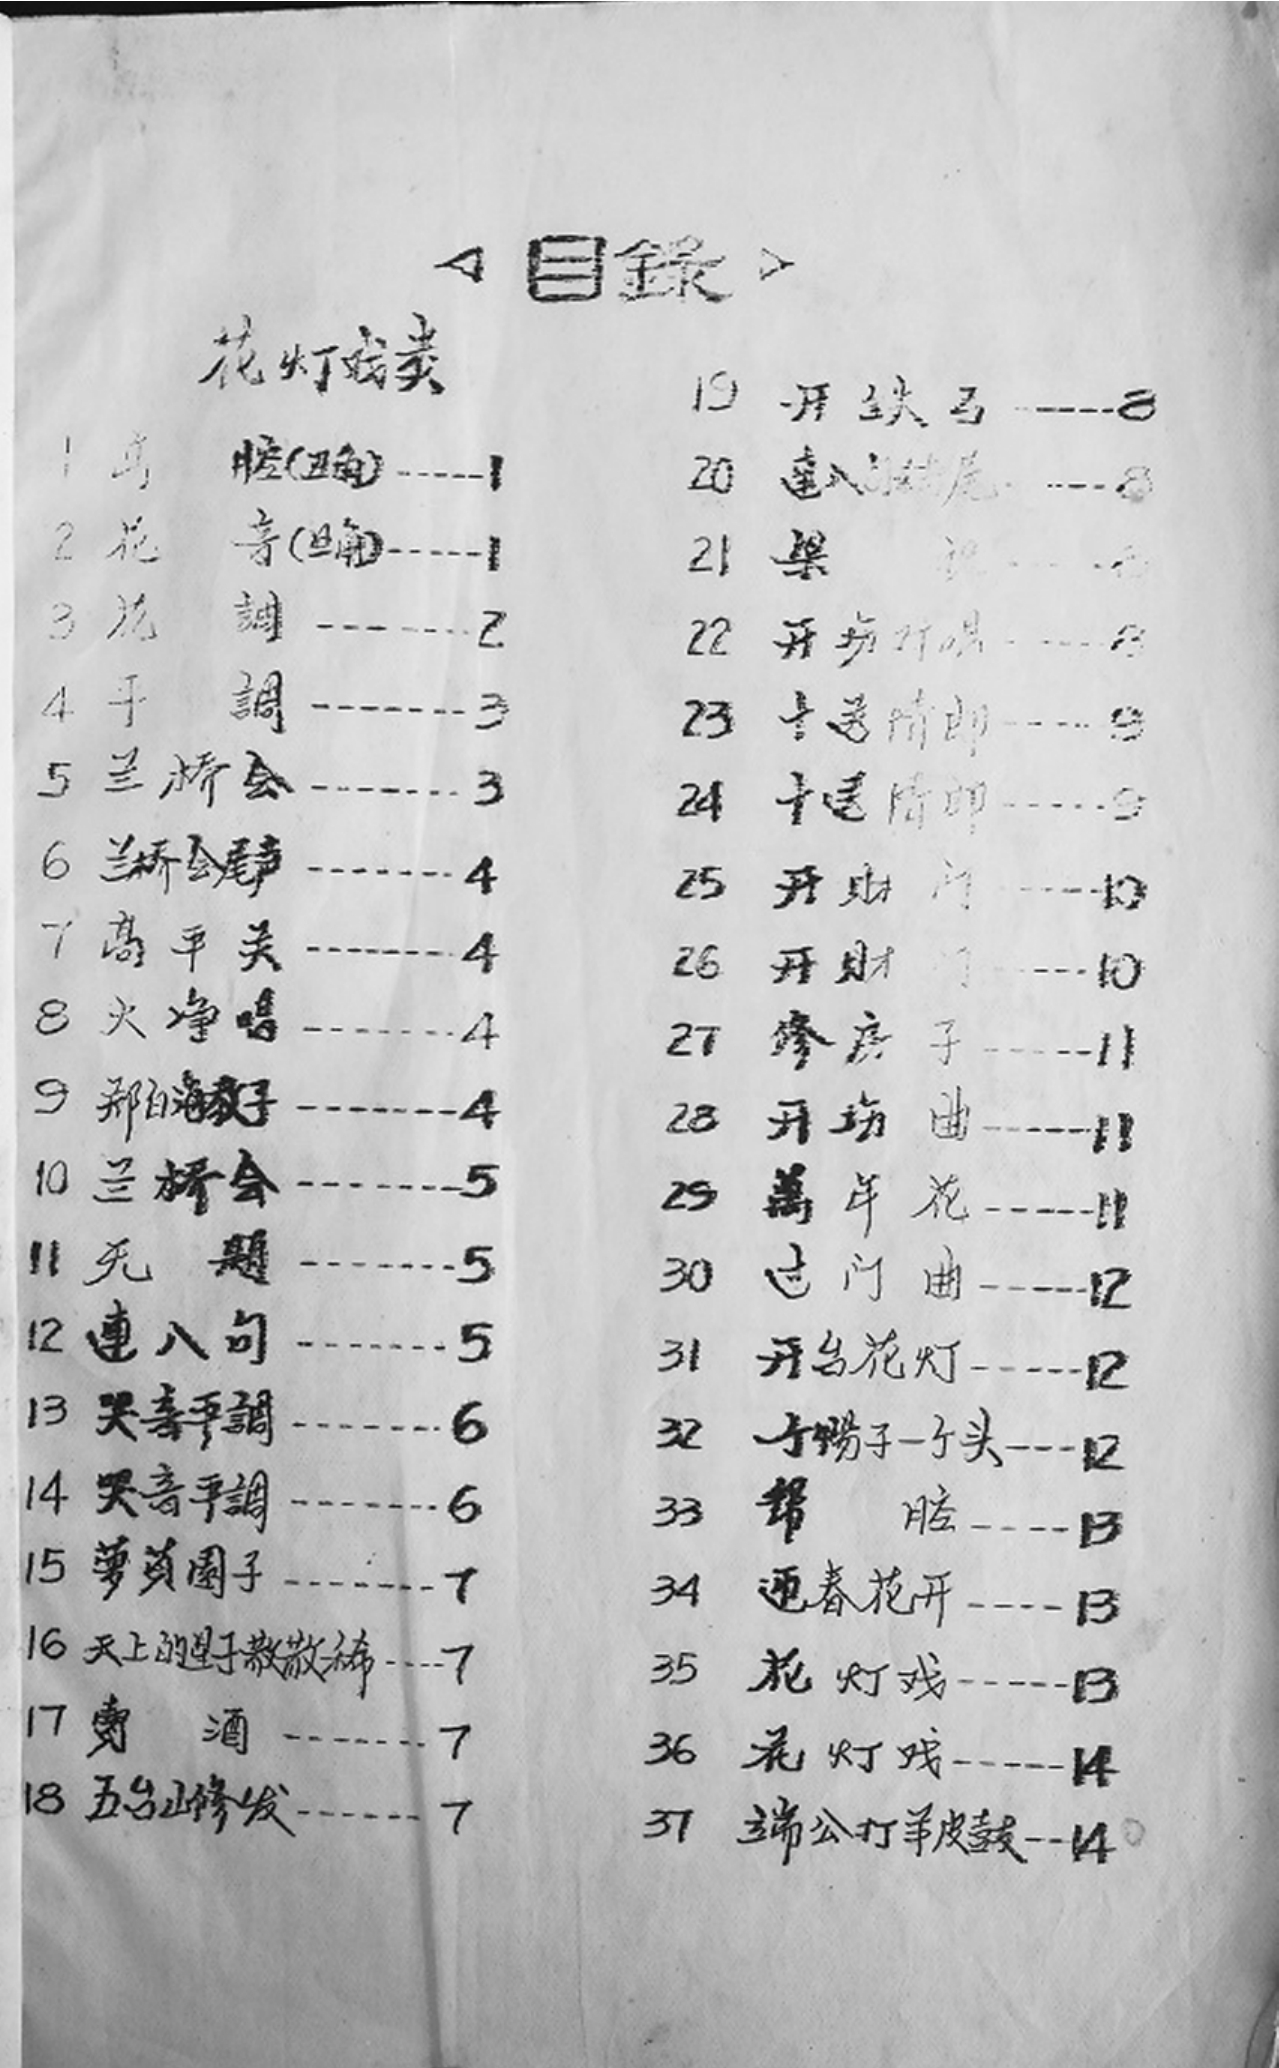 <目錄>
花灯戏类
1 高 腔(丑角)-----1
2 花 音(旦角)-----1
3 花 調-------2
4 平 調-------3
5 兰桥会-------3
6 兰桥会尾声-------4
7 高平关-------4
8 火 唱-------4
9 郑百海教子-------4
10 兰桥会-------5
11 无 题-------5
12 連八句-------5
13 哭音平調-------6
14 哭音平調-------6
15 萝 園子-------7
16 天上的星子散散稀----7
17 賣 酒-------7
18 五台山修发------7
19 开铁弓-----8
20 連八句结尾----8
21 梁
22 开 灯
23 十送情郎-----9
24 十送情郎-----9
25 开財门-----10
26 开財门-----10
27 修房子-----11
28 开 曲-----11
29 萬年花-----11
30 过门曲-----12
31 开台花灯-----12
32 子一个头---12
33 帮 腔----13
34 迎春花开----13
35 花灯戏-----13
36 花灯戏-----14
37 端公打羊皮鼓--14